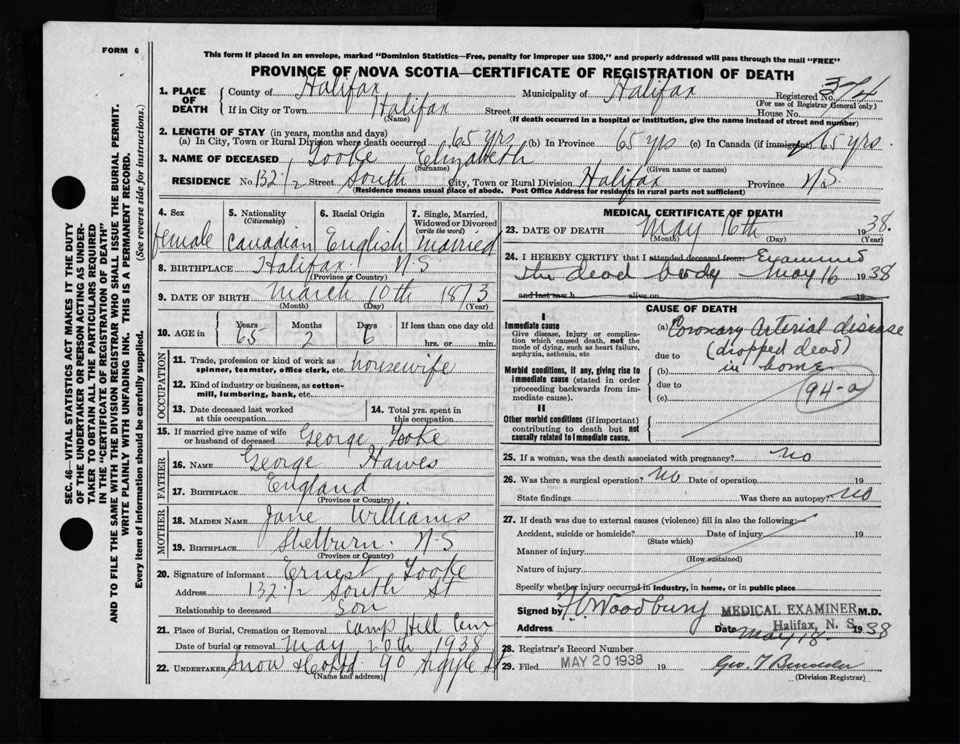 FORM 6
This form if placed in an envelope, marked "Dominion Statistics—Free, penalty for improper use $300," and properly addressed will pass through the mail "FREE"
PROVINCE OF NOVA SCOTIA—CERTIFICATE OF REGISTRATION OF DEATH
SEC. 46—VITAL STATISTICS ACT MAKES IT THE DUTY
OF THE UNDERTAKER OR PERSON ACTING AS UNDER-
TAKER TO OBTAIN ALL THE PARTICULARS REQUIRED
IN THE "CERTIFICATE OF REGISTRATION OF DEATH"
AND TO FILE THE SAME WITH THE DIVISION REGISTRAR WHO SHALL ISSUE THE BURIAL PERMIT.
WRITE PLAINLY WITH UNFADING INK. THIS IS A PERMANENT RECORD.
Every item of information should be carefully supplied. (See reverse side for instructions.)
1. PLACE OF DEATH County of Halifax Municipality of Halifax Registered No. 374
(For use of Registrar General only)
If in City or Town Halifax Street House No.
(Name) (If death occurred in a hospital or institution, give the name instead of street and number)
2. LENGTH OF STAY (in years, months and days)
(a) In City, Town or Rural Division where death occurred 65 yrs (b) In Province 65 yrs (c) In Canada (if immigrant) 65 yrs.
3. NAME OF DECEASED Tooke Elizabeth
(Surname) (Given name or names)
RESIDENCE No. 132 1/2 Street South City, Town or Rural Division Halifax Province N.S.
(Residence means usual place of abode. Post Office Address for residents in rural parts not sufficient)
4. Sex female
5. Nationality (Citizenship) Canadian
6. Racial Origin English
7. Single, Married, Widowed or Divorced (write the word) Married
8. BIRTHPLACE Halifax N S
(Province or Country)
9. DATE OF BIRTH March 10th 1873
(Month) (Day) (Year)
10. AGE in Years 65 Months 2 Days 6 If less than one day old hrs. or min.
OCCUPATION
11. Trade, profession or kind of work as spinner, teamster, office clerk, etc. housewife
12. Kind of industry or business, as cotton-mill, lumbering, bank, etc.
13. Date deceased last worked at this occupation
14. Total yrs. spent in this occupation
15. If married give name of wife or husband of deceased George Tooke
FATHER
16. NAME George Hawes
17. BIRTHPLACE England
(Province or Country)
MOTHER
18. MAIDEN NAME Jane Williams
19. BIRTHPLACE Shelburn. N.S
(Province or Country)
20. Signature of informant Ernest Tooke
Address 132 1/2 South St
Relationship to deceased Son
21. Place of Burial, Cremation or Removal Camp Hill Cem
Date of burial or removal May 20th 1938
22. UNDERTAKER Snow & Co Ltd 90 Argyle St
(Name and address)
MEDICAL CERTIFICATE OF DEATH
23. DATE OF DEATH May 16th 1938.
(Month) (Day) (Year)
24. I HEREBY CERTIFY that I attended deceased from: Examined
the dead body May 16 1938
and last saw h alive on 19
CAUSE OF DEATH
I
Immediate cause
Give disease, injury or complication which caused death, not the mode of dying, such as heart failure, asphyxia, asthenia, etc
Morbid conditions, if any, giving rise to immediate cause (stated in order proceeding backwards from immediate cause).
II
Other morbid conditions (if important) contributing to death but not causally related to immediate cause.
(a) Coronary Arterial disease
due to (dropped dead)
(b) in home
due to (94-a)
(c)
25. If a woman, was the death associated with pregnancy? no
26. Was there a surgical operation? no Date of operation 19
State findings Was there an autopsy? no
27. If death was due to external causes (violence) fill in also the following:—
Accident, suicide or homicide? Date of injury 19
(State which)
Manner of injury
(How sustained)
Nature of injury
Specify whether injury occurred in industry, in home, or in public place
Signed by Woodbury MEDICAL EXAMINER M.D.
Address Halifax, N. S. Date May 18. 1938
28. Registrar's Record Number
29. Filed MAY 20 1938 19 Geo. T
(Division Registrar)